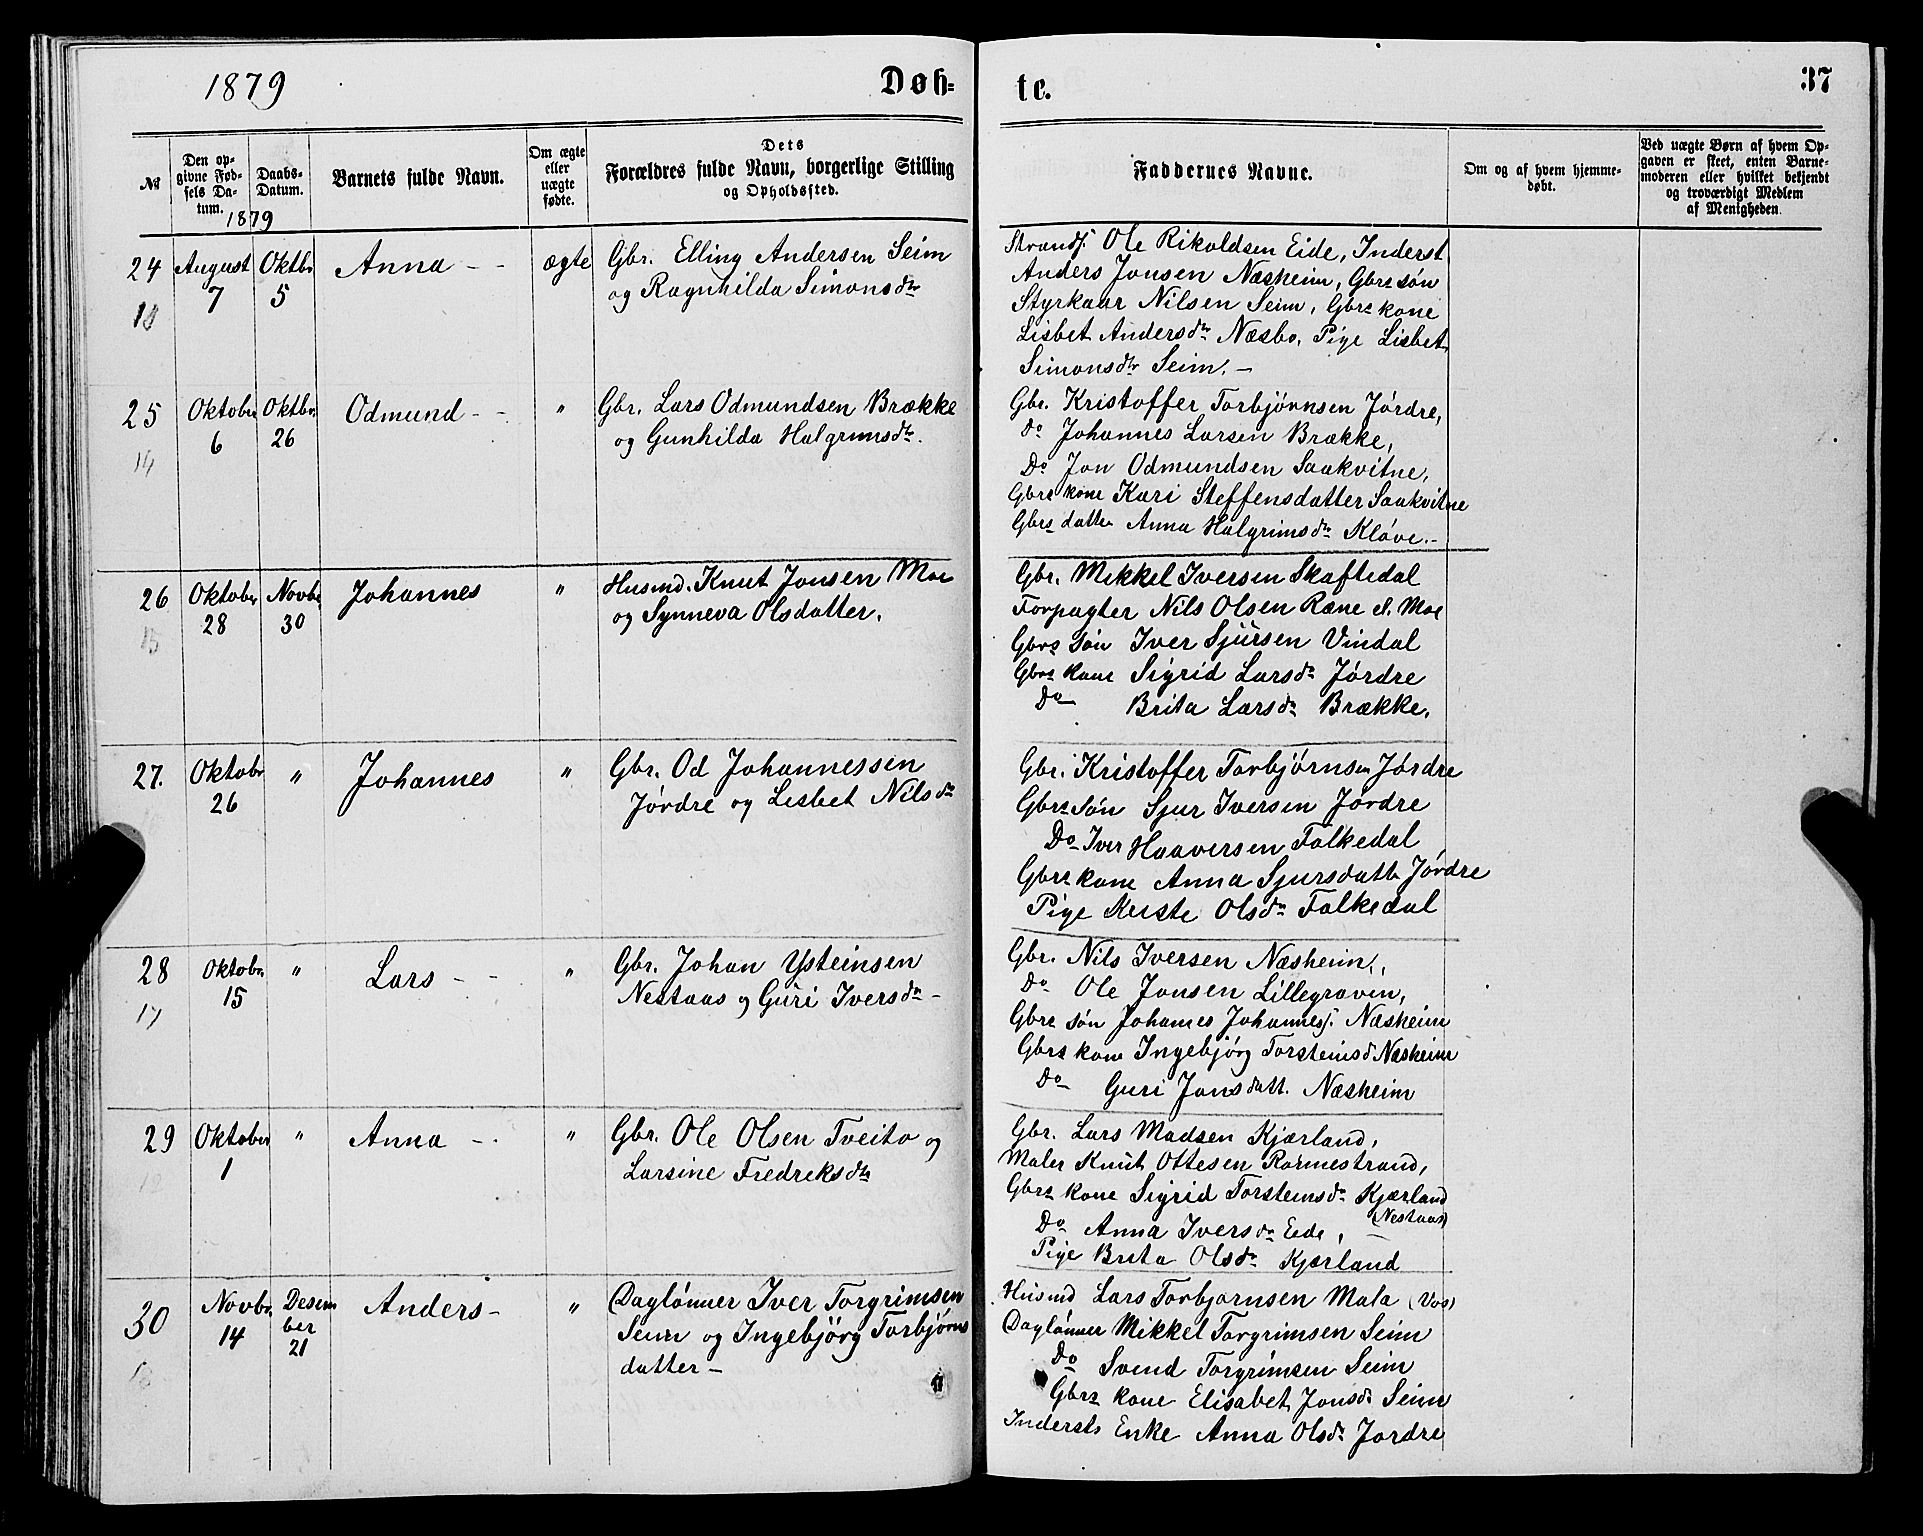 1879
Døb-
te.
37
№
Den op-
givne Fød-
sels Da-
tum.
1879
Daabs-
Datum.
Barnets fulde Navn.
Om ægte
eller
uægte
fødte.
Dets
Forældres fulde Navn, borgerlige Stilling
og Opholdssted.
Faddernes Navne.
Om og af hvem hjemme-
døbt.
Ved uægte Børn af hvem Op-
gaven er skeet, enten Barne-
moderen eller hvilket bekjendt
og troværdigt Medlem
af Menigheden.
24
August
7
Oktbr
5
Anna - -
ægte
Gbr. Elling Andersen Seim
og Ragnhilda Simonsdtr
Strands. Ole Rikoldsen Eide, Inderst
Anders Jonsen Næsheim, Gbrs søn
Styrkaar Nilsen Seim, Gbrs kone
Lisbet Andersdtr Næsbo, Pige Lisbet
Simonsdtr Seim. -
25
14
Oktober
6
Oktbr.
26
Odmund - -
"
Gbr. Lars Odmundsen Brække
og Gunhilda Halgrimsdtr.
Gbr. Kristoffer Torbjørnsen Jørdre,
Do Johannes Larsen Brække,
Do Jon Odmundsen Saakvitne,
Gbrs kone Kari Steffensdatter Saakvitne
Gbrs datter Anna Halgrimsdtr Kløve. -
26
15
Oktober
28
Novbr
30
Johannes
"
Husmd. Knut Jonsen Moe
og Synneva Olsdatter.
Gbr. Mikkel Iversen Skaftedal
Forpagter Nils Olsen Ræne el. Moe
Gbrs søn Iver Sjursen Vindal
Gbrs kone Sigrid Larsdtr Jørdre
Do Brita Larsdtr Brække.
27.
Oktobr
26
"
Johannes
"
Gbr. Od Johannessen
Jørdre og Lisbet Nilsdtr
Gbr. Kristoffer Torbjørnsen Jørdre
Gbrs søn Sjur Iversen Jørdre
Do Iver Haaversen Folkedal
Gbrs kone Anna Sjursdattr Jørdre
Pige Kerste Olsdtr Folkedal
28
17
Oktobr.
15
"
Lars - -
"
Gbr. Johan Ysteinsen
Nestaas og Guri Iversdtr -
Gbr. Nils Iversen Næsheim,
Do Ole Jonsen Lillegraven,
Gbrs søn Johannes Johanness. Næsheim
Gbrs kone Ingebjørg Torsteinsd. Næsheim
Do Guri Jonsdatt. Næsheim
29
Oktober
1
"
Anna - .
"
Gbr. Ole Olsen Tveito og
Larsine Fredreksdtr
Gbr. Lars Madsen Kjærland,
Maler Knut Ottesen Rørmestrand,
Gbrs kone Sigrid Torsteinsdtr Kjærland
(Nestaas)
Do Anna Iversdtr Eede,
Pige Brita Olsdtr Kjærland
30
Novbr.
14
Desem
ber
21
Anders -
"
Daglønner Iver Torgrimsen
Seim og Ingebjørg Torbjørns
datter -
Husmd Lars Torbjørnsen Mala (Vos)
Daglønner Mikkel Torgrimsen Seim
Do Svend Torgrimsen Seim
Gbrs kone Elisabet Jonsdtr Seim
Indersts Enke Anna Olsdtr Jordre